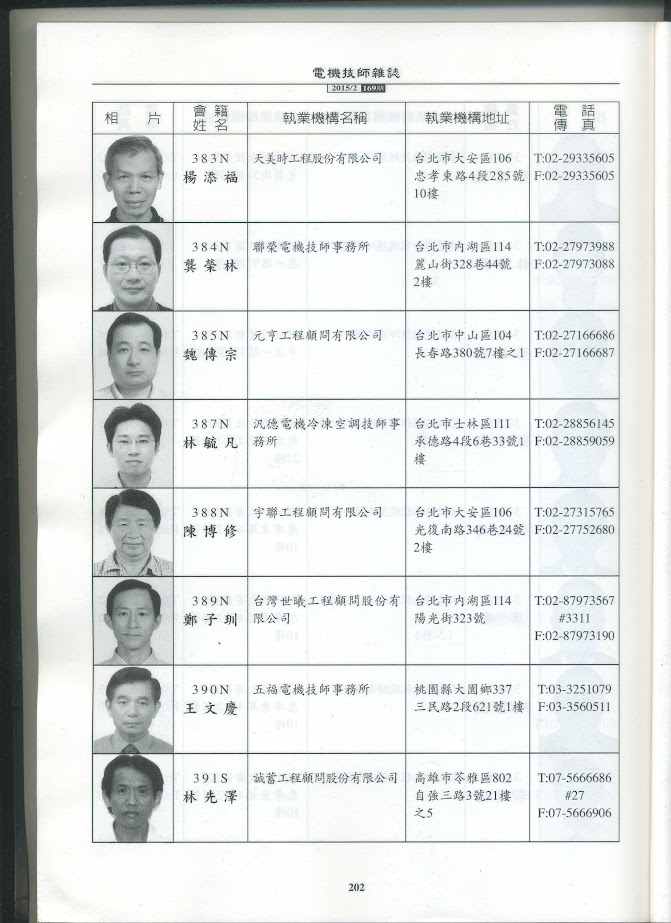 電機技師雜誌
2015/2 169期
相 片
會 籍
姓 名
執業機構名稱
執業機構地址
電 話
傳 真
383N
楊添福
天美時工程股份有限公司
台北市大安區106
忠孝東路4段285號
10樓
T:02-29335605
F:02-29335605
384N
龔榮林
聯榮電機技師事務所
台北市內湖區114
麗山街328巷44號
2樓
T:02-27973988
F:02-27973088
385N
魏傳宗
元亨工程顧問有限公司
台北市中山區104
長春路380號7樓之1
T:02-27166686
F:02-27166687
387N
林毓凡
汎德電機冷凍空調技師事
務所
台北市士林區111
承德路4段6巷33號1
樓
T:02-28856145
F:02-28859059
388N
陳博修
宇聯工程顧問有限公司
台北市大安區106
光復南路346巷24號
2樓
T:02-27315765
F:02-27752680
389N
鄭子玔
台灣世曦工程顧問股份有
限公司
台北市內湖區114
陽光街323號
T:02-87973567
#3311
F:02-87973190
390N
王文慶
五福電機技師事務所
桃園縣大園鄉337
三民路2段621號1樓
T:03-3251079
F:03-3560511
391S
林先澤
誠蓄工程顧問股份有限公司
高雄市苓雅區802
自強三路3號21樓
之5
T:07-5666686
#27
F:07-5666906
202